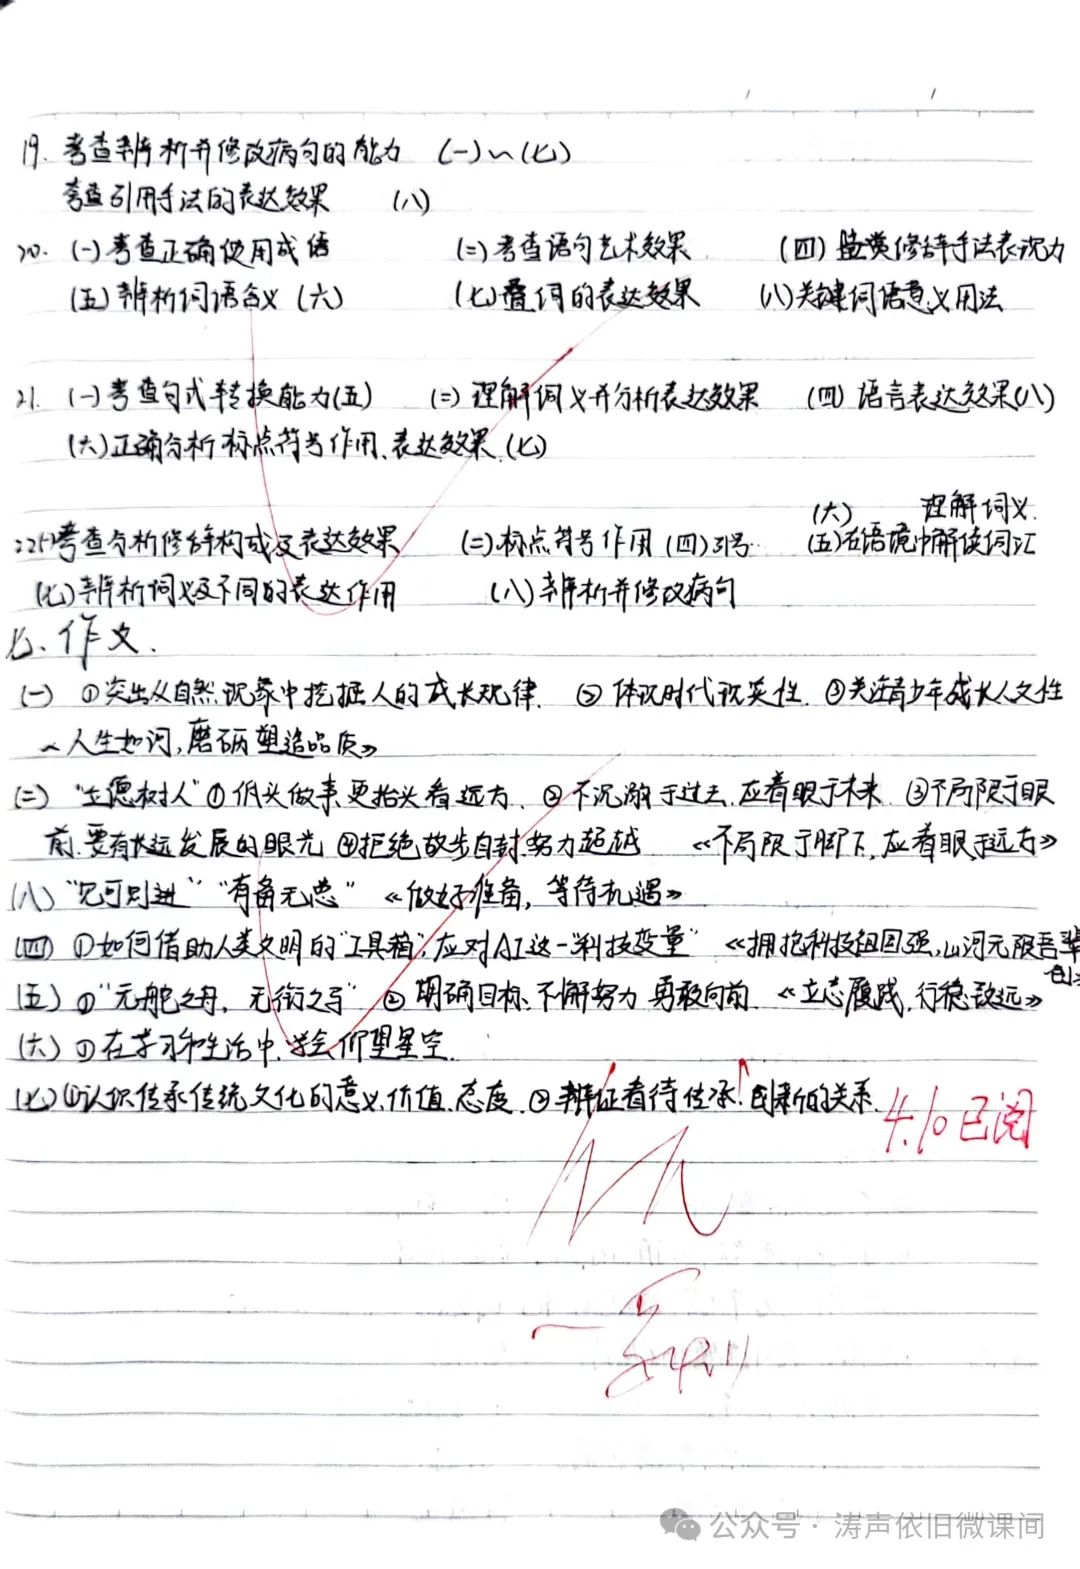 19. 考查辨析并修改病句的能力 (一)~(七)
考查引用手法的表达效果 (八)
20. (一)考查正确使用成语 (二)考查语句艺术效果 (四) 鉴赏修辞手法表现力
(五)辨析词语含义 (六) (七)叠词的表达效果 (八)关键词语意义用法
21. (一)考查句式转换能力(五) (二)理解词义并分析表达效果 (四) 语言表达效果(八)
(六)正确分析标点符号作用、表达效果.(七)
(六) 理解词义.
22.(一)考查分析修辞构成及表达效果 (二)标点符号作用 (四)引号… (五)在语境中解读词汇
(七)辨析词义及不同的表达作用 (八)辨析并修改病句
七、作文.
(一) ①突出从自然现象中挖掘人的成长规律. ②体现时代现实性. ③关注青少年成长人文性
《人生如河,磨砺塑造品质》
(二) "立德树人"①低头做事更抬头看远方. ②不沉溺于过去.应着眼于未来. ③不局限于眼
前.要有长远发展的眼光 ④拒绝故步自封.努力超越 《不局限于脚下,应着眼于远方》
(八)"见可则进" "有备无患" 《做好准备,等待机遇》
(四) ①如何借助人类文明的"工具箱",应对AI这一"科技变量" 《拥抱科技祖国强,山河无限吾辈
创》
(五) ①"无舵之舟,无衔之马" ②明确目标、不懈努力 勇敢向前. 《立志履践,行稳致远》
(六) ①在学习和生活中,学会仰望星空.
(七)①认识传承传统文化的意义.价值.态度. ②辩证看待传承.创新的关系.
4.10已阅
公众号·涛声依旧微课间